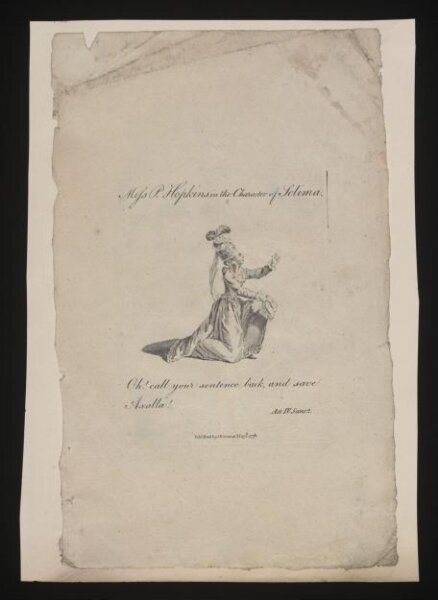 Miss P. Hopkins in the Character of Selima.
Oh! call your sentence back, and save
Axalla!
Act IV. Scene 2.
Published by